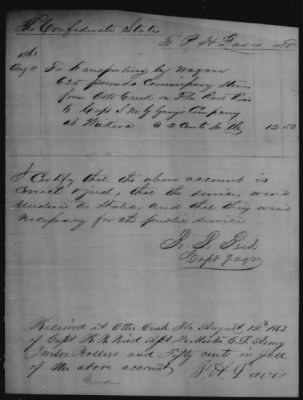 The Confederate States
To P H Davis Dr
1863
Aug 11 To transporting by wagon
625 pounds Commissary Stores
from Otter Creek on Fla Rail Road
to Capt J M G Company
at Wekiva @ 2 Cents pr lb 12.50
I Certify that the above account is
correct & just, that the services were
rendered as stated, and that they were
necessary for the public service
Capt
Received at Otter Creek Fla August 1863
of Capt Qr Master C. S. Army
Twelve Dollars and Fifty cents in full
of the above account
P. H. Davis